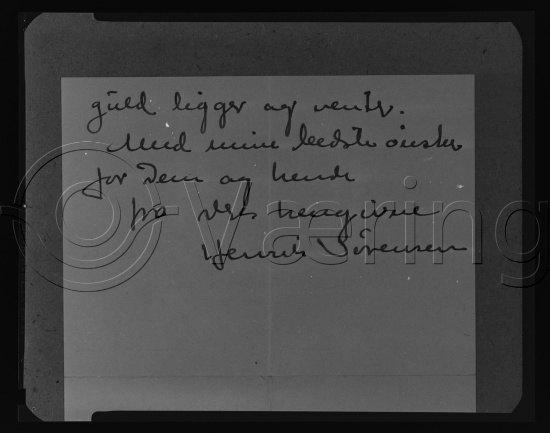 guld ligger og venter.
Med mine bedste ønsker
for Dem og hende
fra Deres hengivne
Henrik Sørensen
O. Væring